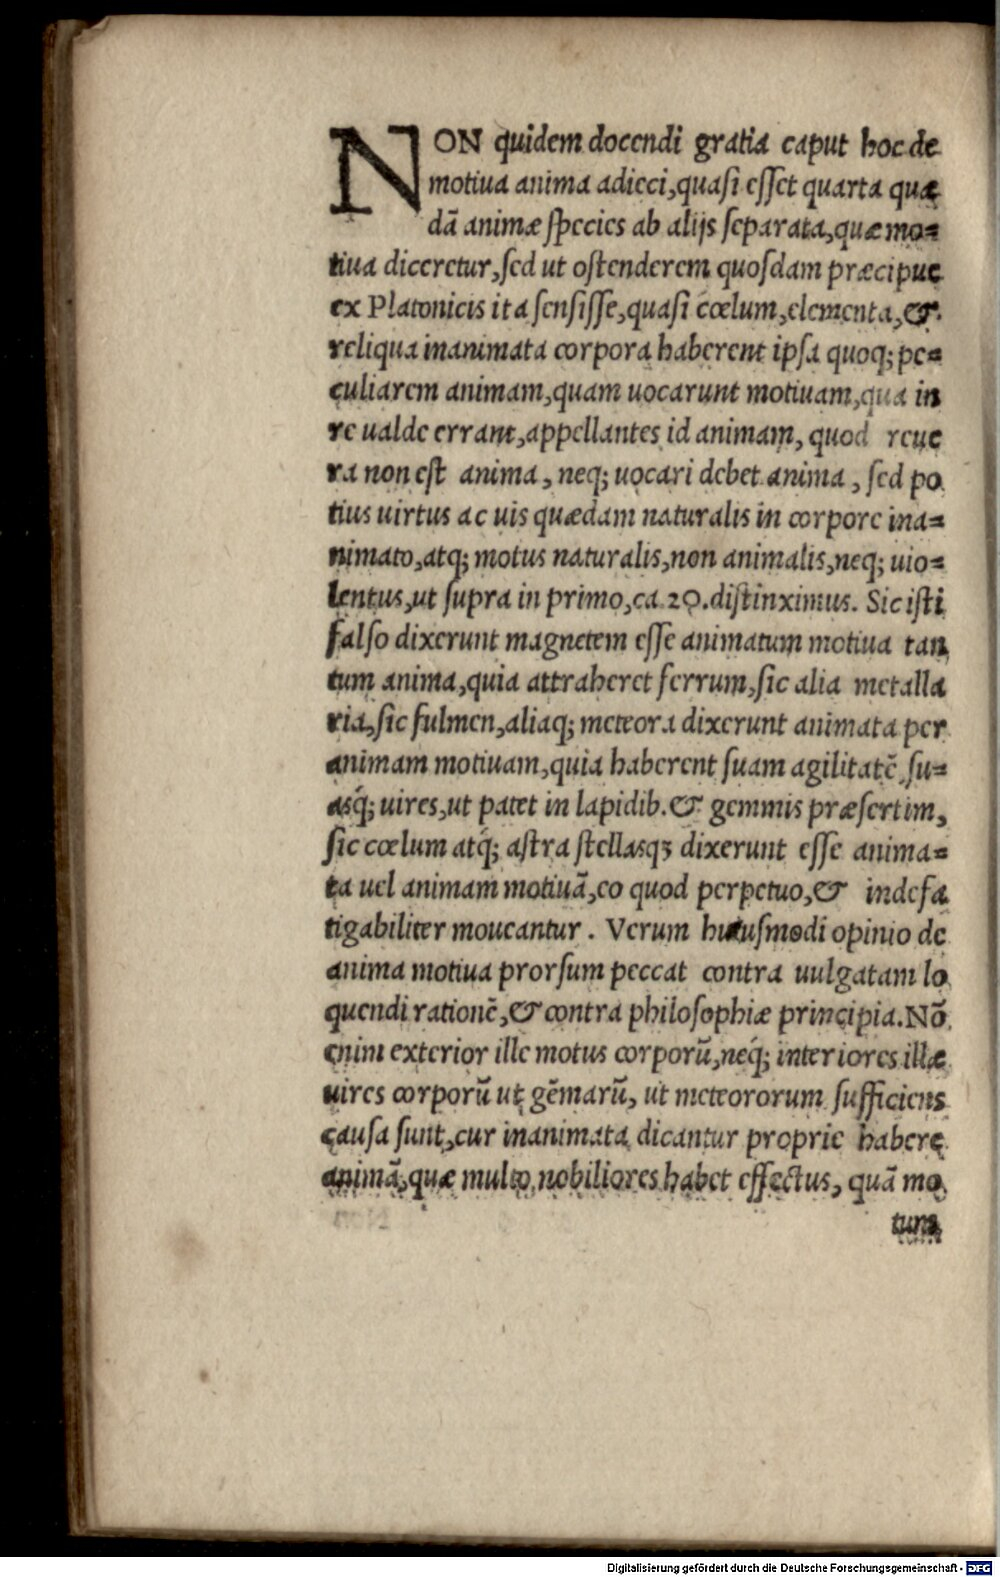 NON quidem docendi gratia caput hoc de
motiua anima adieci, quasi esset quarta quæ
dā animæ species ab alijs separata, quæ mo=
tiua diceretur, sed ut ostenderem quosdam præcipue
ex Platonicis ita sensisse, quasi cœlum, elementa, &
reliqua inanimata corpora haberent ipsa quoq; pe=
culiarem animam, quam uocarunt motiuam, qua in
re ualde errant, appellantes id animam, quod reue
ra non est anima, neq; uocari debet anima, sed po
tius uirtus ac uis quædam naturalis in corpore ina=
nimato, atq; motus naturalis, non animalis, neq; uio=
lentus, ut supra in primo, ca. 20. distinximus. Sic isti
falso dixerunt magnetem esse animatum motiua tan
tum anima, quia attraheret ferrum, sic alia metalla
ria, sic fulmen, aliaq; meteora dixerunt animata per
animam motiuam, quia haberent suam agilitatē su=
asq́; uires, ut patet in lapidib. & gemmis præsertim,
sic cœlum atq́; astra stellasqꝫ dixerunt esse anima=
ta uel animam motiuā, eo quod perpetuo, & indefa
tigabiliter moueantur. Verum huiusmodi opinio de
anima motiua prorsum peccat contra uulgatam lo
quendi rationē, & contra philosophiæ principia. Nō
enim exterior ille motus corporū, neq́; interiores illæ
uires corporū ut gēmarū, ut meteororum sufficiens
causa sunt, cur inanimata dicantur proprie habere
animā, quæ multo nobiliores habet effectus, quā mo
tum
Digitalisierung gefördert durch die Deutsche Forschungsgemeinschaft - DFG